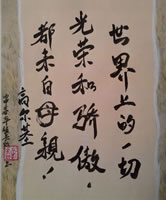 世界上的一切
光荣和骄傲，
都来自母亲！
高尔基